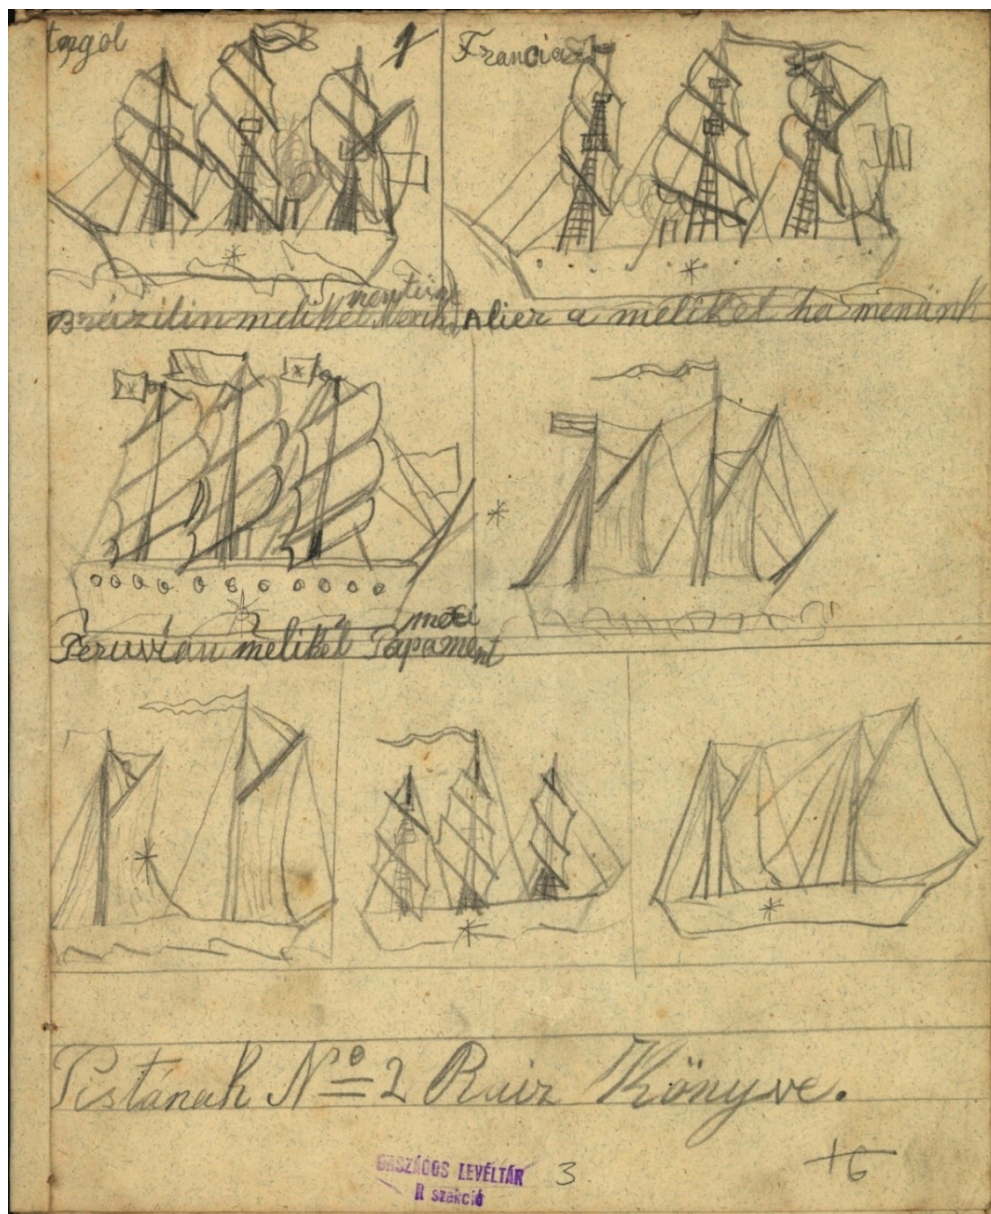 Angol 1
Francia
nem
Brézilin meliket
Alier a meliket ha menünk
Peruvian meliket Papament
Pistanak No 2 Raiz Könyve.
ORSZÁGOS LEVÉLTÁR
R szekció
3
16